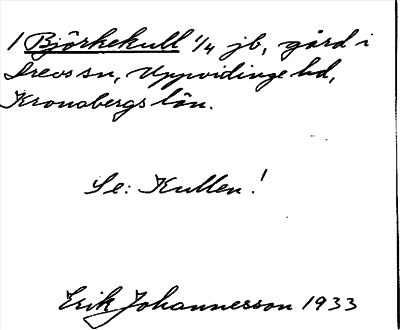 1 Björkekull 1/4 jb, gård i
Drevs sn, Uppvidinge hd,
Kronobergs län.
Se: Kullen!
Erik Johannesson 1933